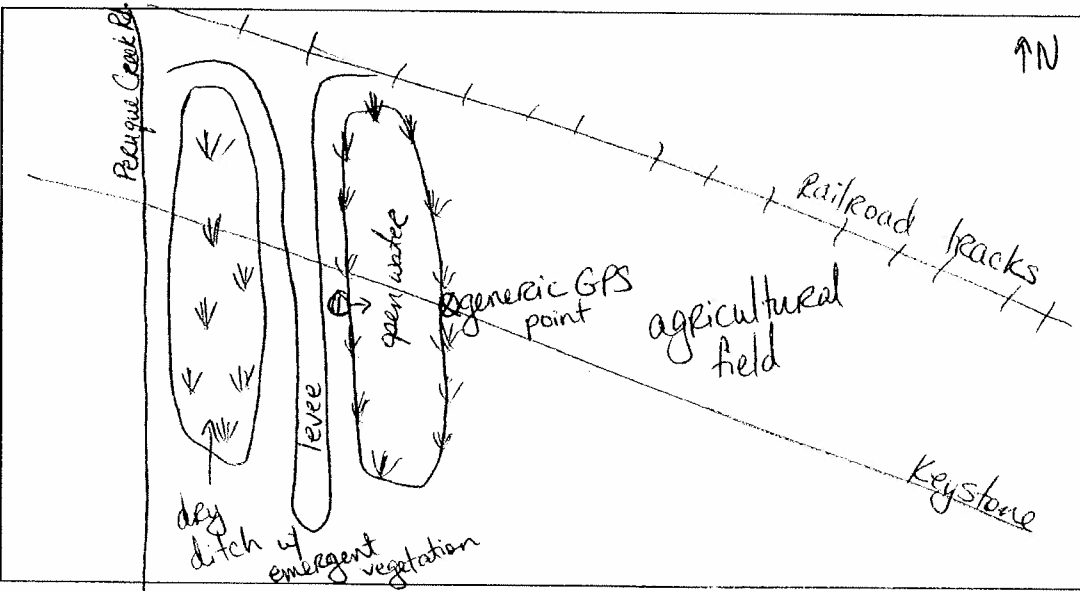 Peruque Creek Rd.
↑N
Railroad tracks
open water
generic GPS
point
agricultural
field
levee
Keystone
dry
ditch w/
emergent
vegetation